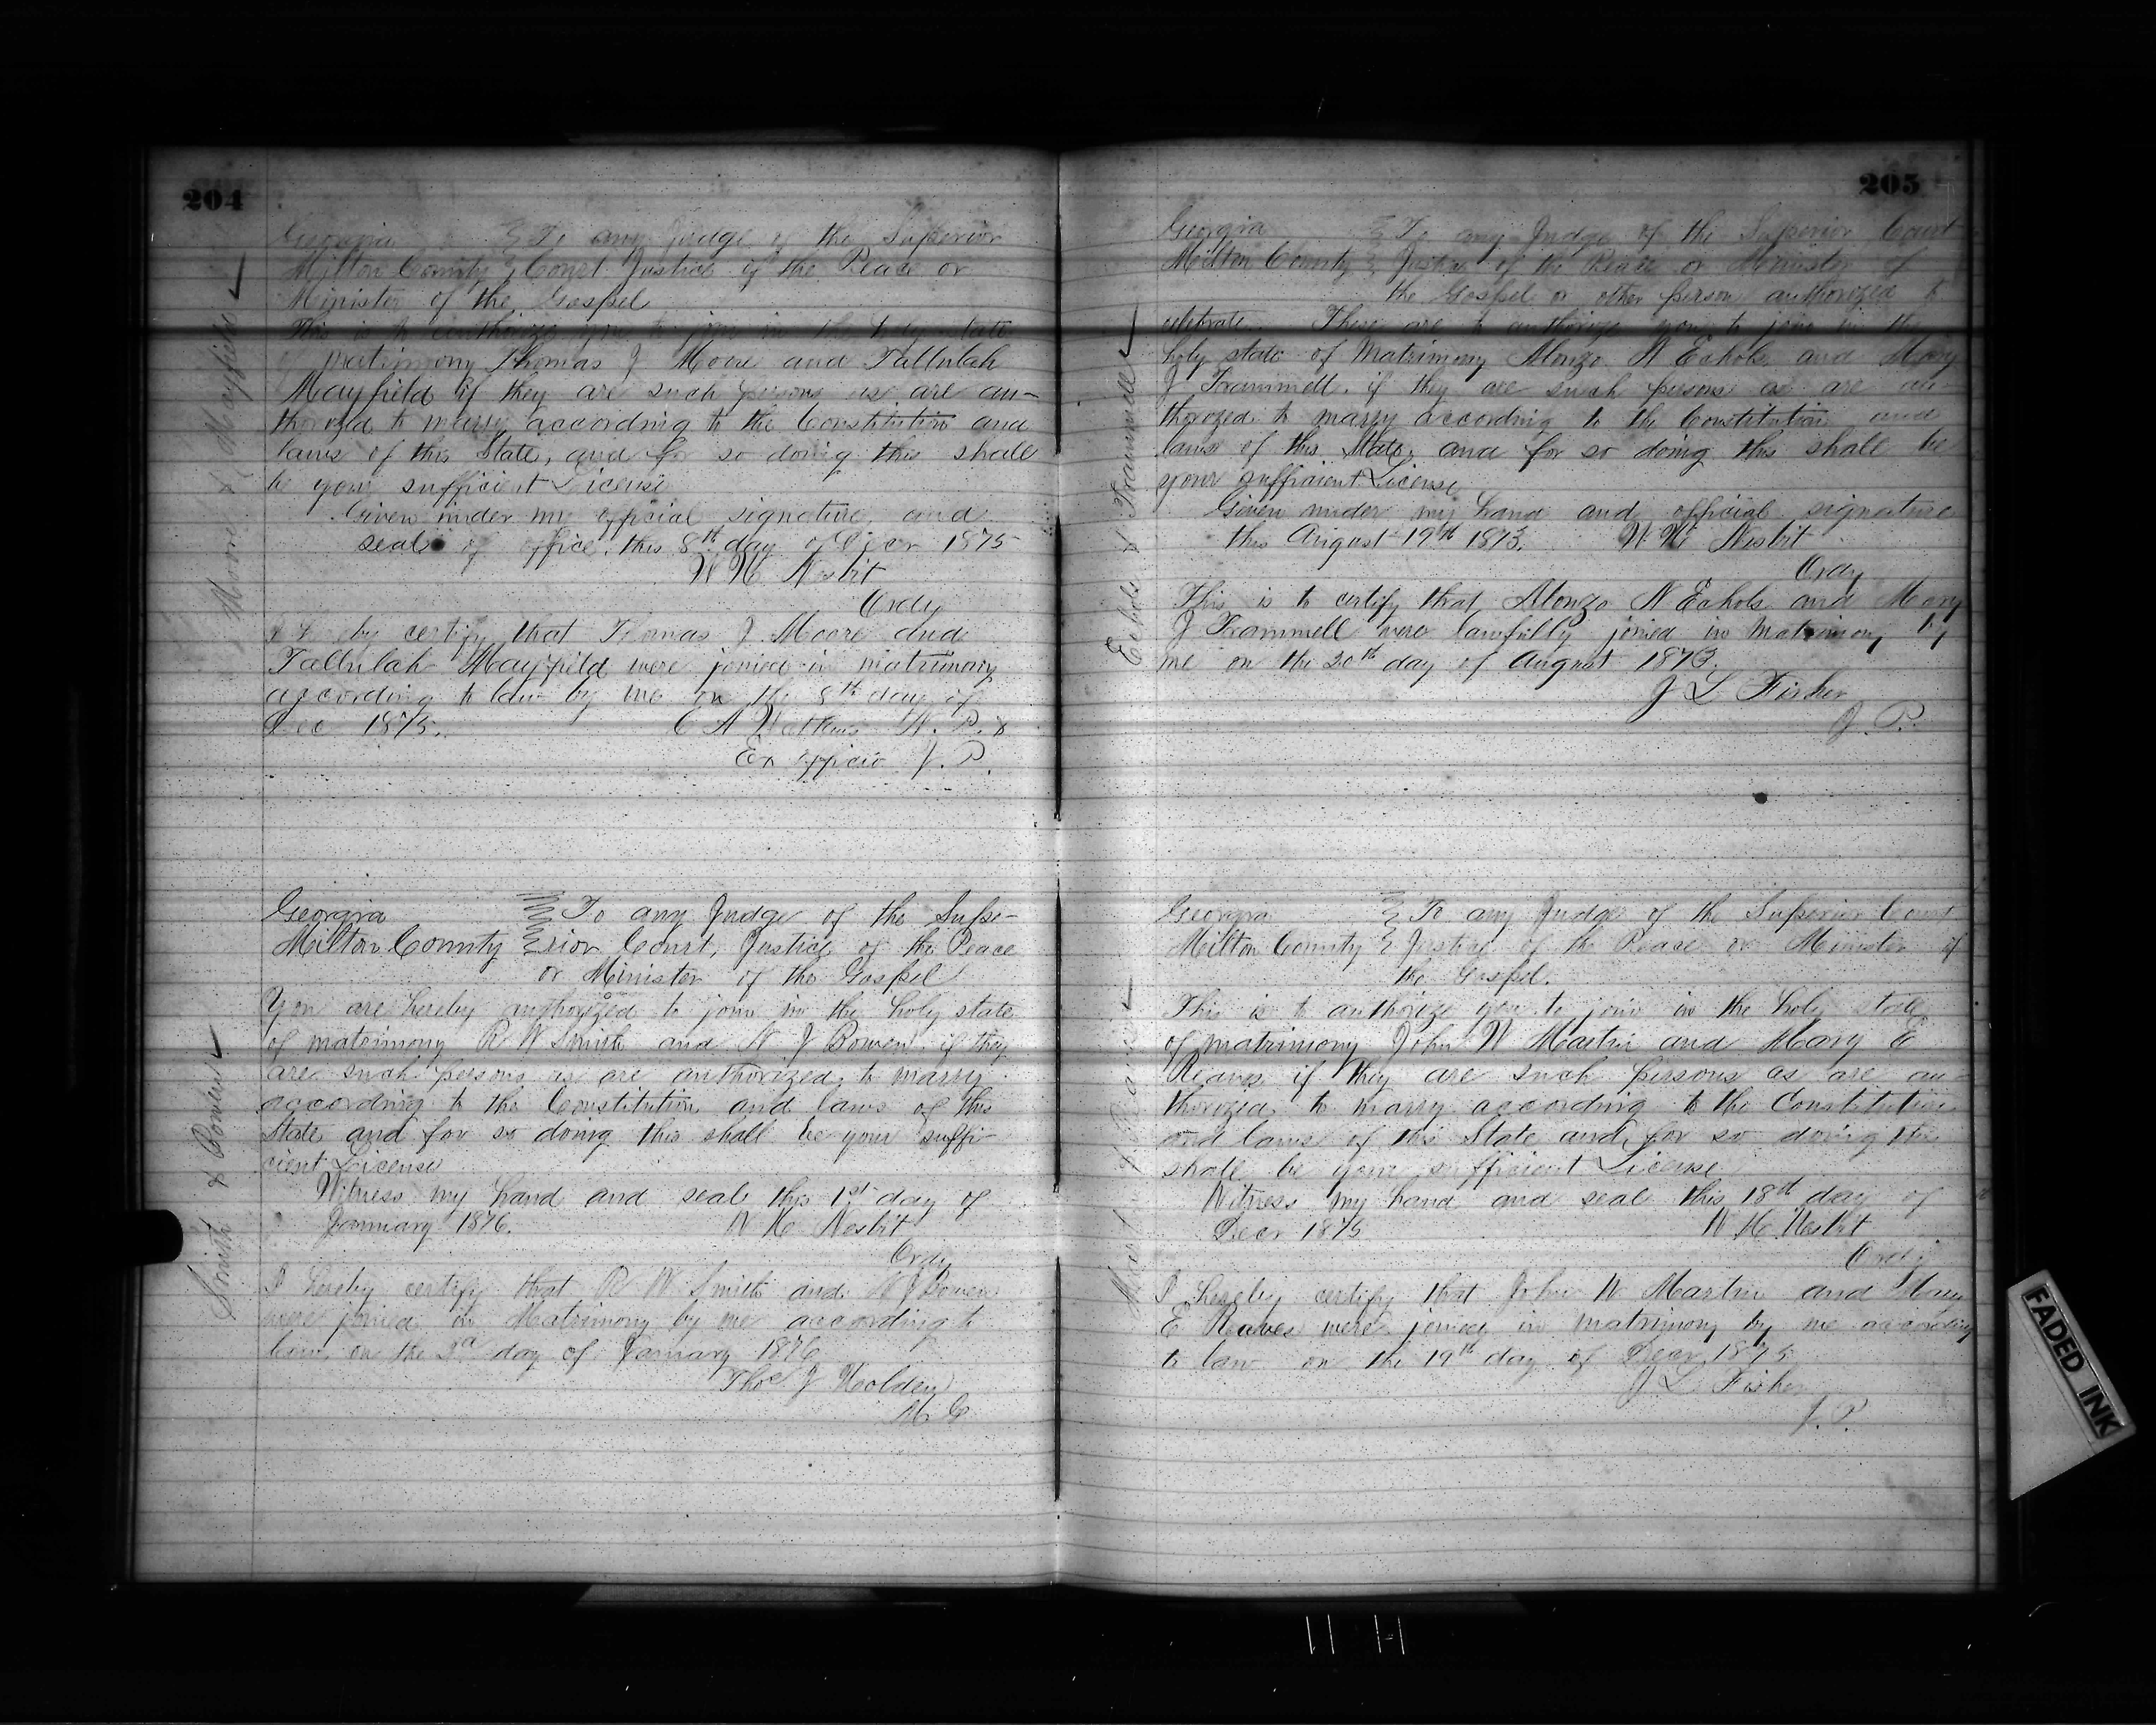 204
Moore & Mayfield
Georgia To any Judge of the Superior
Milton County Court Justice of the Peace or
Minister of the Gospel
This is to authorize you to join in the Holy state
of matrimony Thomas J Moore and Tallulah
Mayfield if they are such persons as are au-
thorized to marry according to the Constitution and
laws of this State, and for so doing this shall
be your sufficient License
Given under my official signature and
seal of office, this 8th day of Decr 1875
W H Nesbit
Ordy
I hereby certify that Thomas J. Moore and
Tallulah Mayfield were joined in matrimony
according to law by me on the 8th day of
Dec 1875. C A Watkins N. P. &
Ex officio J. P.
Smith & Bowen
Georgia To any Judge of the Supe-
Milton County rior Court, Justice of the Peace
or Minister of the Gospel
You are hereby authorized to join in the holy state
of matrimony R W Smith and N J Bowen if they
are such persons as are authorized to marry
according to the Constitution and laws of this
State and for so doing this shall be your suffi-
cient License
Witness my hand and seal this 1st day of
January 1876. W H Nesbit
Ordy
I hereby certify that R W Smith and N J Bowen
were joined in Matrimony by me according to
law, on the 2d day of January 1876
Thos J Holden
M G
205
Echols & Trammell
Georgia To any Judge of the Superior Court
Milton County Justice of the Peace or Minister of
the Gospel or other person authorized to
celebrate. These are to authorize you to join in the
holy state of Matrimony Alonzo N Echols and Mary
J Trammell. if they are such persons as are au-
thorozed to marry according to the Constitution and
laws of this State, and for so doing this shall be
your sufficient License
Given under my hand and official signature
this August 19th 1873. W H Nesbit
Ordy
This is to certify that Alonzo N Echols and Mary
J Trammell were lawfully joined in Matrimony by
me on the 20th day of August 1873.
J L Fisher
J. P.
& Reaves
Georgia To any Judge of the Superior Court
Milton County Justice of the Peace or Minister of
the Gospel.
This is to authorize you to join in the holy state
of matrimony John W Martin and Mary E
Reaves if they are such persons as are au-
thorized to marry according to the Constitution
and laws of this State and for so doing this
shall be your sufficient License
Witness my hand and seal this 18th day of
Decr 1875 W H Nesbit
Ordy
I hereby certify that John W Martin and Mary
E Reaves were joined in matrimony by me according
to law on the 19th day of Decr 1875
J L Fisher
J. P.
FADED INK